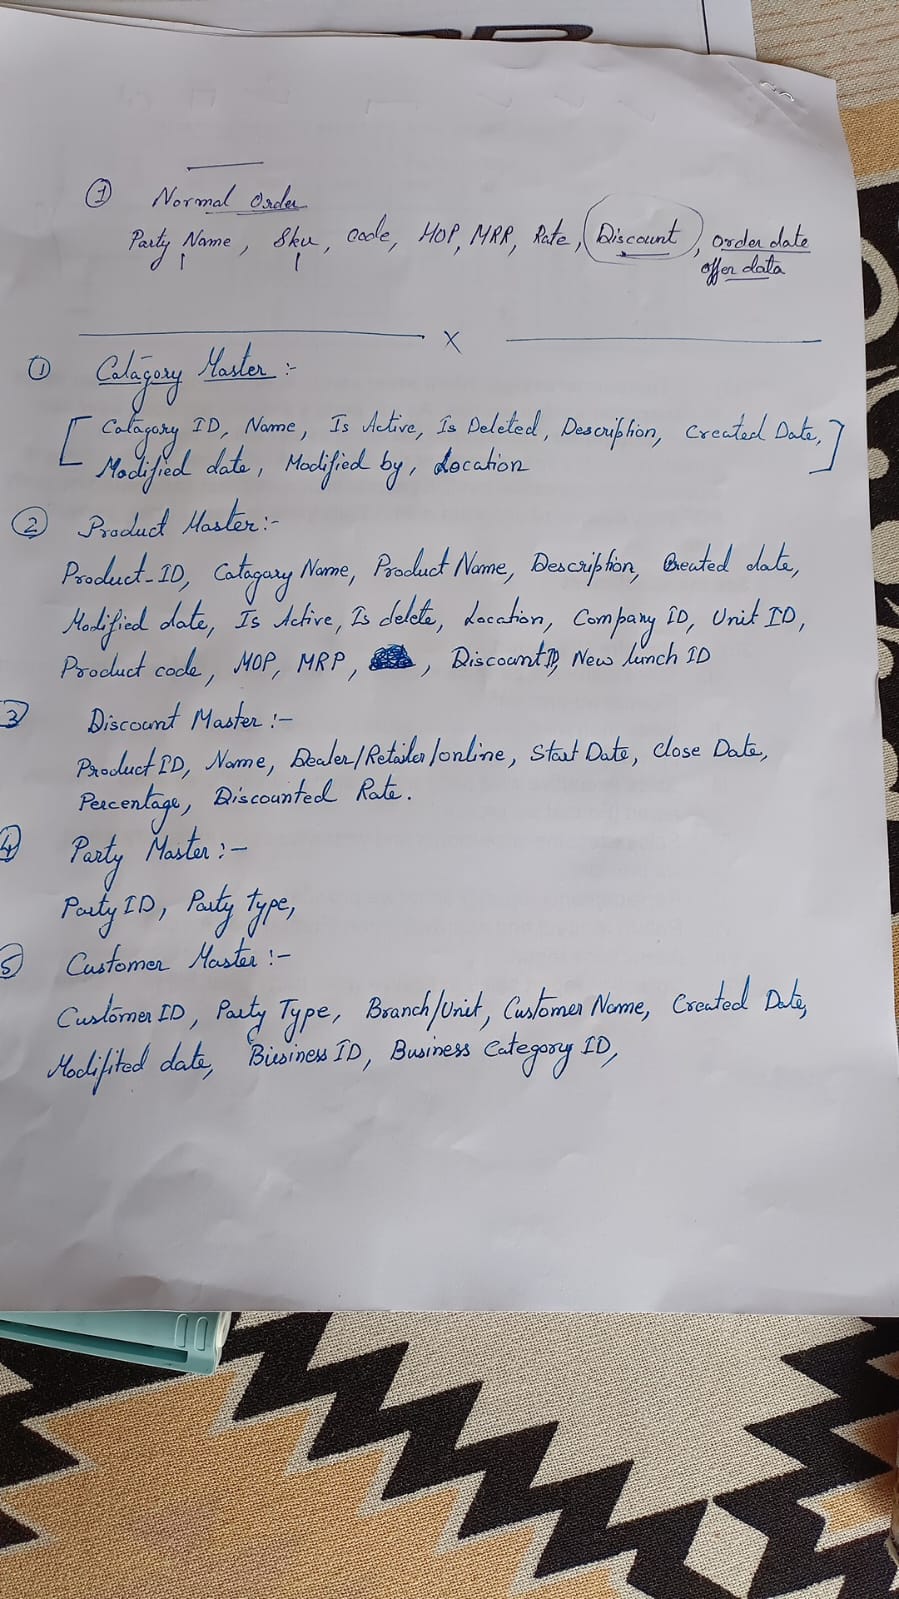 ① Normal Order
Party Name, Sku, Code, MOP, MRP, Rate, Discount, order date
offer data
x
① Catagory Master :-
[ Catagory ID, Name, Is Active, Is Deleted, Description, Created Date, ]
Modified date, Modified by, Location
② Product Master:-
Product-ID, Catagary Name, Product Name, Description, Created date,
Modified date, Is Active, Is delete, Location, Company ID, Unit ID,
Product code, MOP, MRP, , Discount ID, New lunch ID
3 Discount Master :-
Product ID, Name, Dealer/Retailer/online, Start Date, Close Date,
Percentage, Discounted Rate.
4 Party Master :-
Party ID, Party Type,
5 Customer Master :-
Customer ID, Party Type, Branch/Unit, Customer Name, Created Date,
Modifited date, Business ID, Business Category ID,